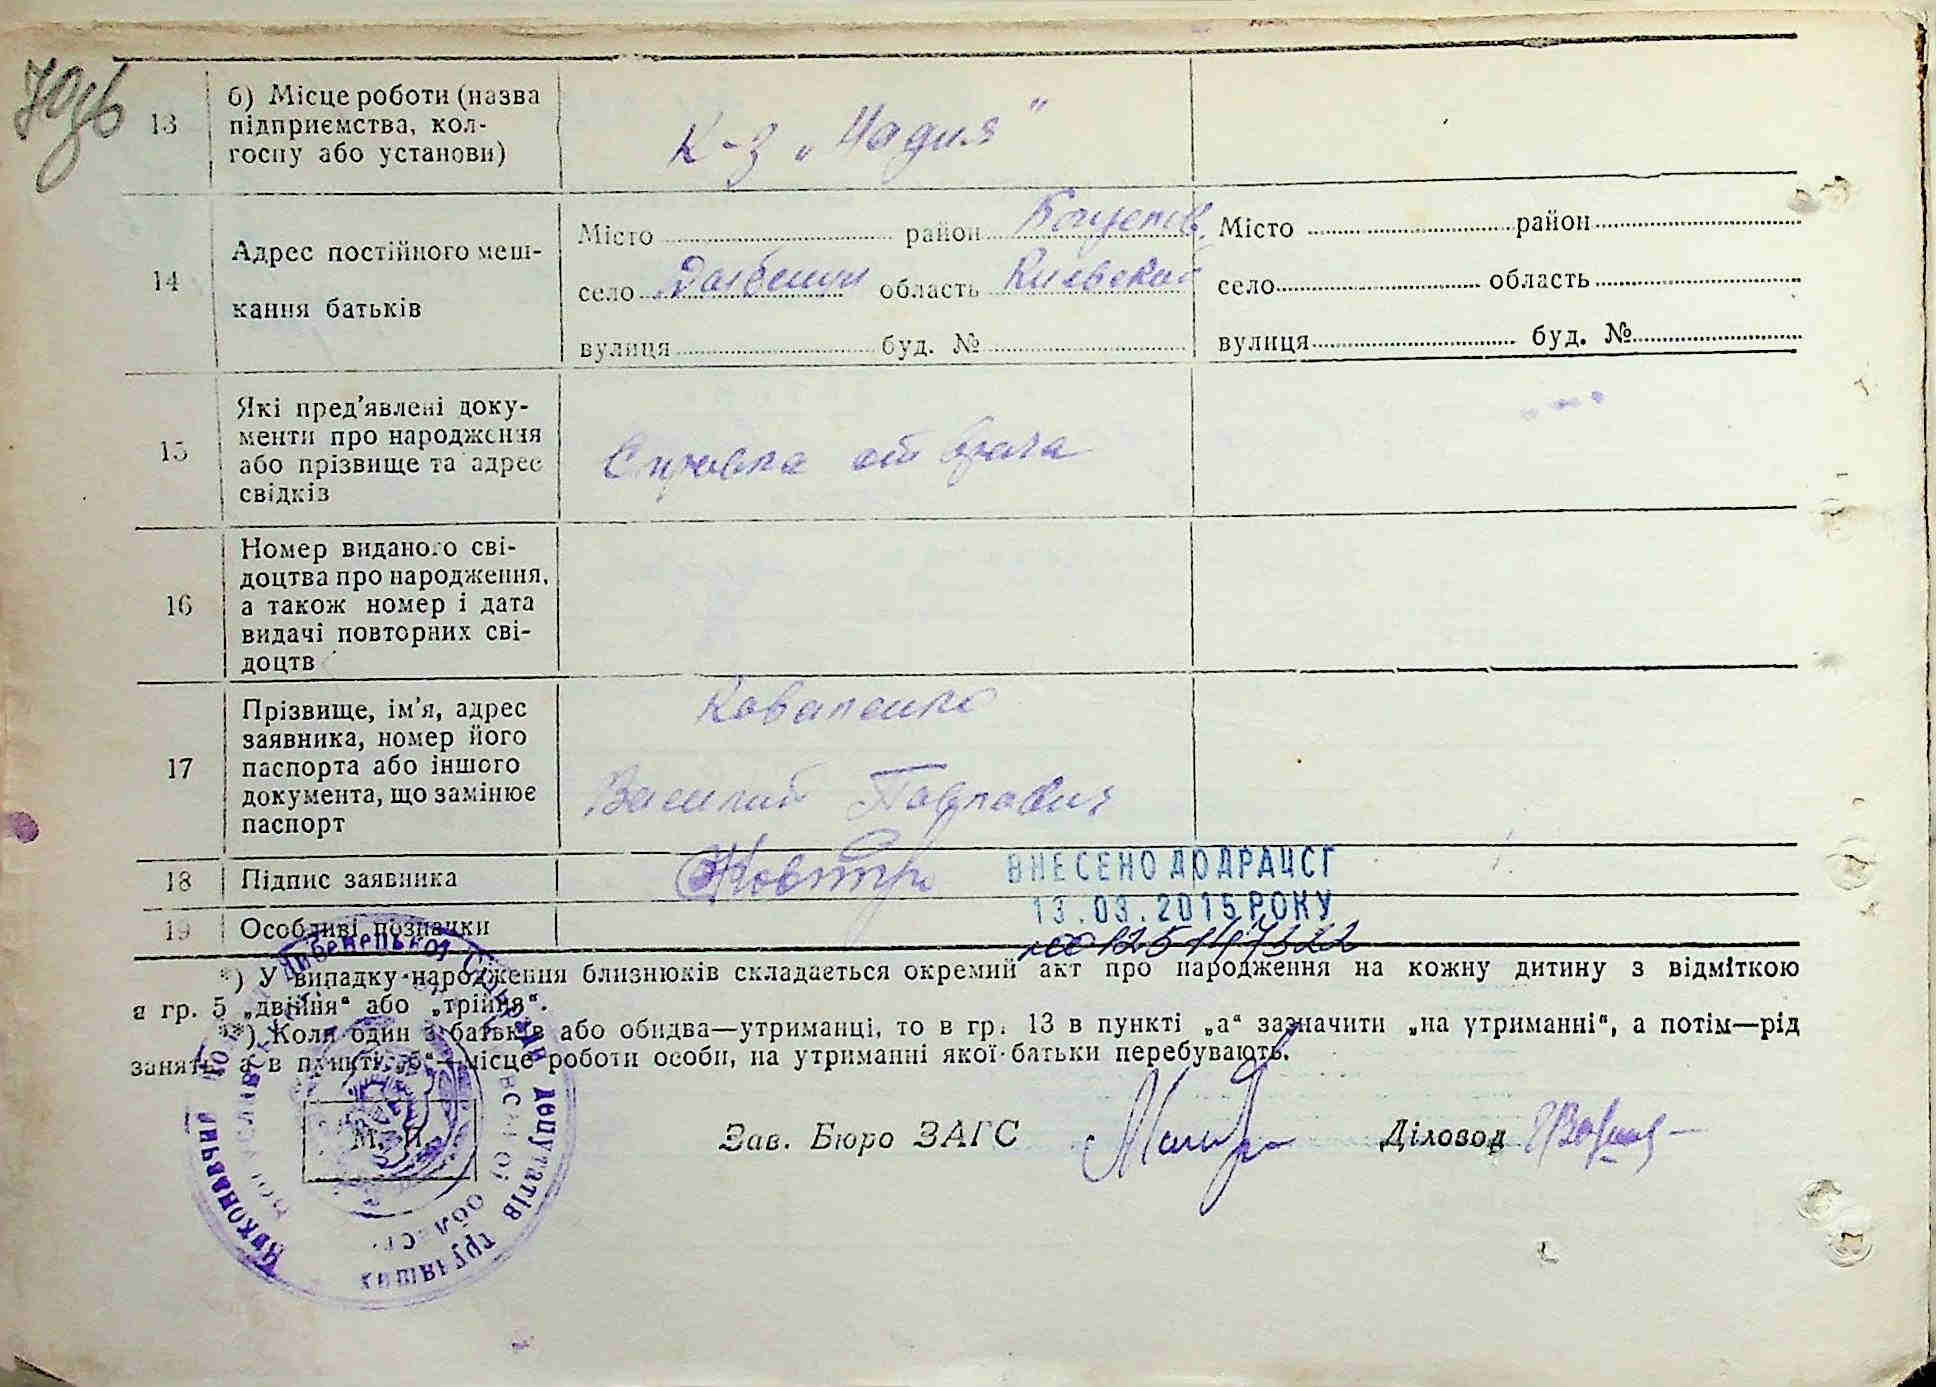 70зв
13
б) Місце роботи (назва
підприємства, кол-
госпу або установи)
К-з „Надия"
14
Адрес постійного меш-
кання батьків
Місто район Богуслав.
село область Киевская
вулиця буд. №
Місто район
село область
вулиця буд. №
15
Які пред'явлені доку-
менти про народження
або прізвище та адрес
свідків
Справка от врача
16
Номер виданого сві-
доцтва про народження,
а також номер і дата
видачі повторних сві-
доцтв
17
Прізвище, ім'я, адрес
заявника, номер його
паспорта або іншого
документа, що замінює
паспорт
Коваленко
Василий Павлович
18
Підпис заявника
ВНЕСЕНО ДО ДРАЦСГ
13.03.2015 РОКУ
19
Особливі позначки
*) У випадку народження близнюків складається окремий акт про народження на кожну дитину з відміткою
в гр. 5 „двійня" або „трійня".
**) Коли один з батьків або обидва—утриманці, то в гр. 13 в пункті „а" зазначити „на утриманні", а потім—рід
занять, а в пункті „б"—місце роботи особи, на утриманні якої батьки перебувають.
М. П.
Зав. Бюро ЗАГС
Діловод
Виконавчий депутатів трудящих